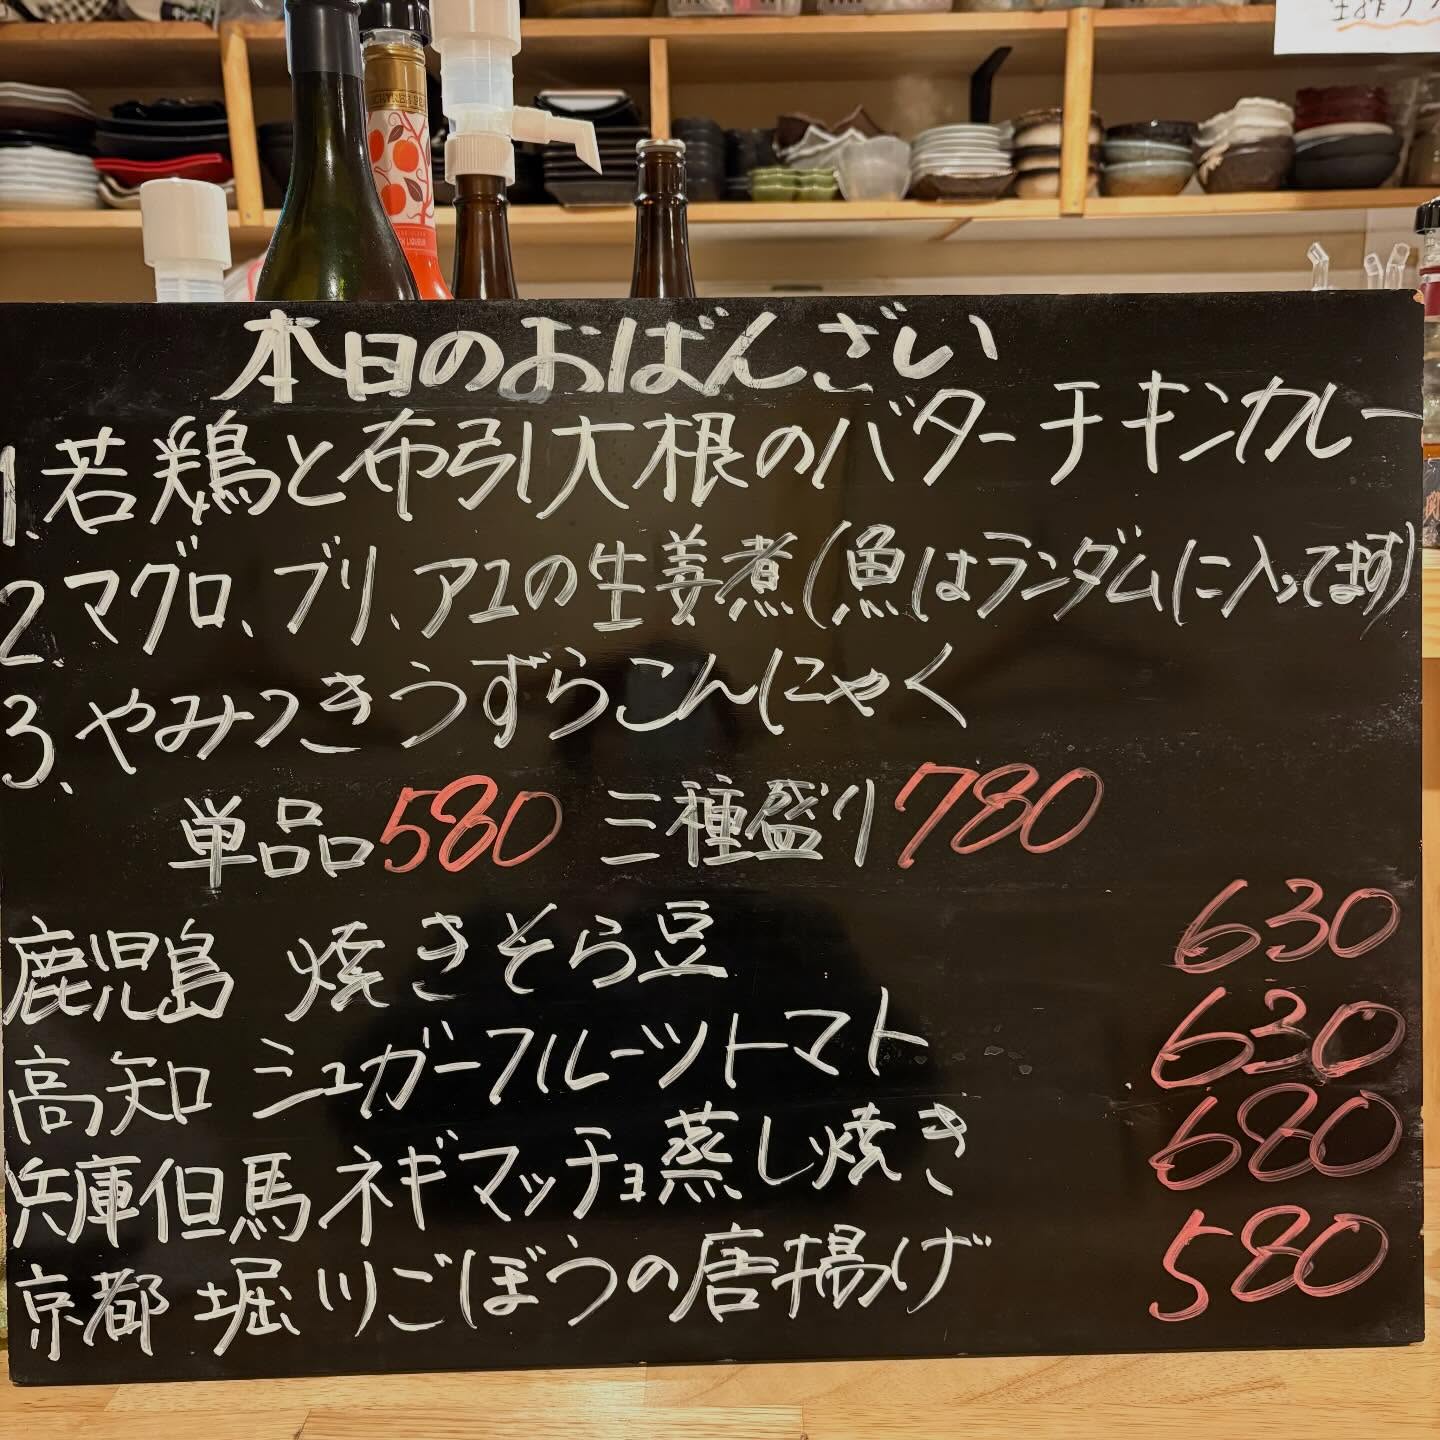 本日のおばんざい
1.若鶏と布引大根のバターチキンカレー
2.マグロ、ブリ、アユの生姜煮(魚はランダムに入ってます)
3、やみつきうずらこんにゃく
単品580 三種盛り780
鹿児島 焼きそら豆 630
高知 シュガーフルーツトマト 630
兵庫但馬ネギマッチョ蒸し焼き 680
京都 堀川ごぼうの唐揚げ 580